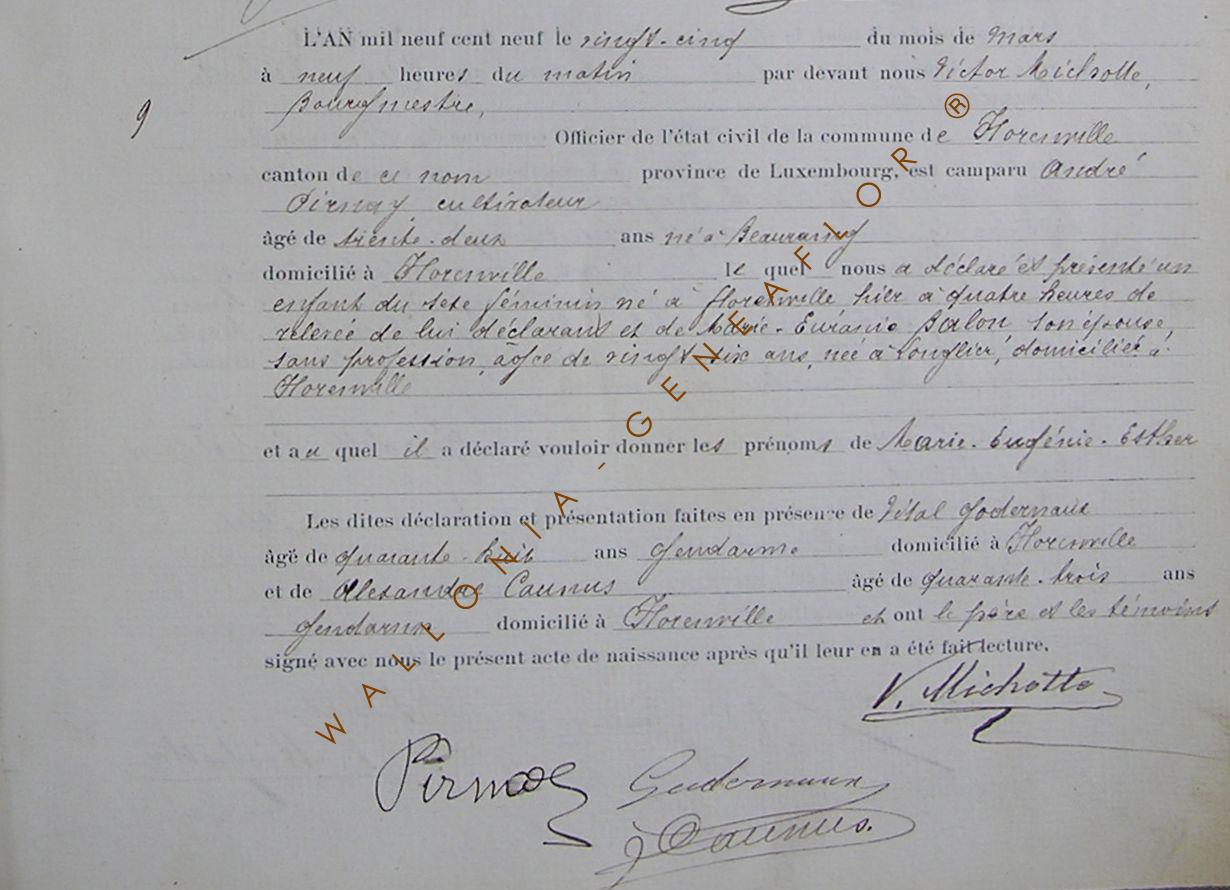 L'AN mil neuf cent neuf le vingt-cinq du mois de Mars
à neuf heures du matin par devant nous Victor Michotte,
Bourgmestre,
9
Officier de l'état civil de la commune de Florenville
canton de ce nom province de Luxembourg, est camparu André
Pirnay cultivateur
âgé de trente-deux ans né à Beauraing
domicilié à Florenville le quel nous a déclaré et présenté un
enfant du sexe féminin né à Florenville hier à quatre heures de
relevée de lui déclarant et de Marie-Euranie Balon son épouse,
sans profession, âgée de vingt six ans, née à Longlier, domiciliée à
Florenville
et au quel il a déclaré vouloir donner les prénoms de Marie-Eugénie-Esther
Les dites déclaration et présentation faites en présence de Vital Godernaux
âgé de quarante-huit ans Gendarme domicilié à Florenville
et de Alexandre Caunus âgé de quarante-trois ans
Gendarme domicilié à Florenville et ont le père et les témoins
signé avec nous le présent acte de naissance après qu'il leur en a été fait lecture.
V. Michotte
Pirnay Godernaux
Caunus.
WALLONIA - GENEAFLOR ®